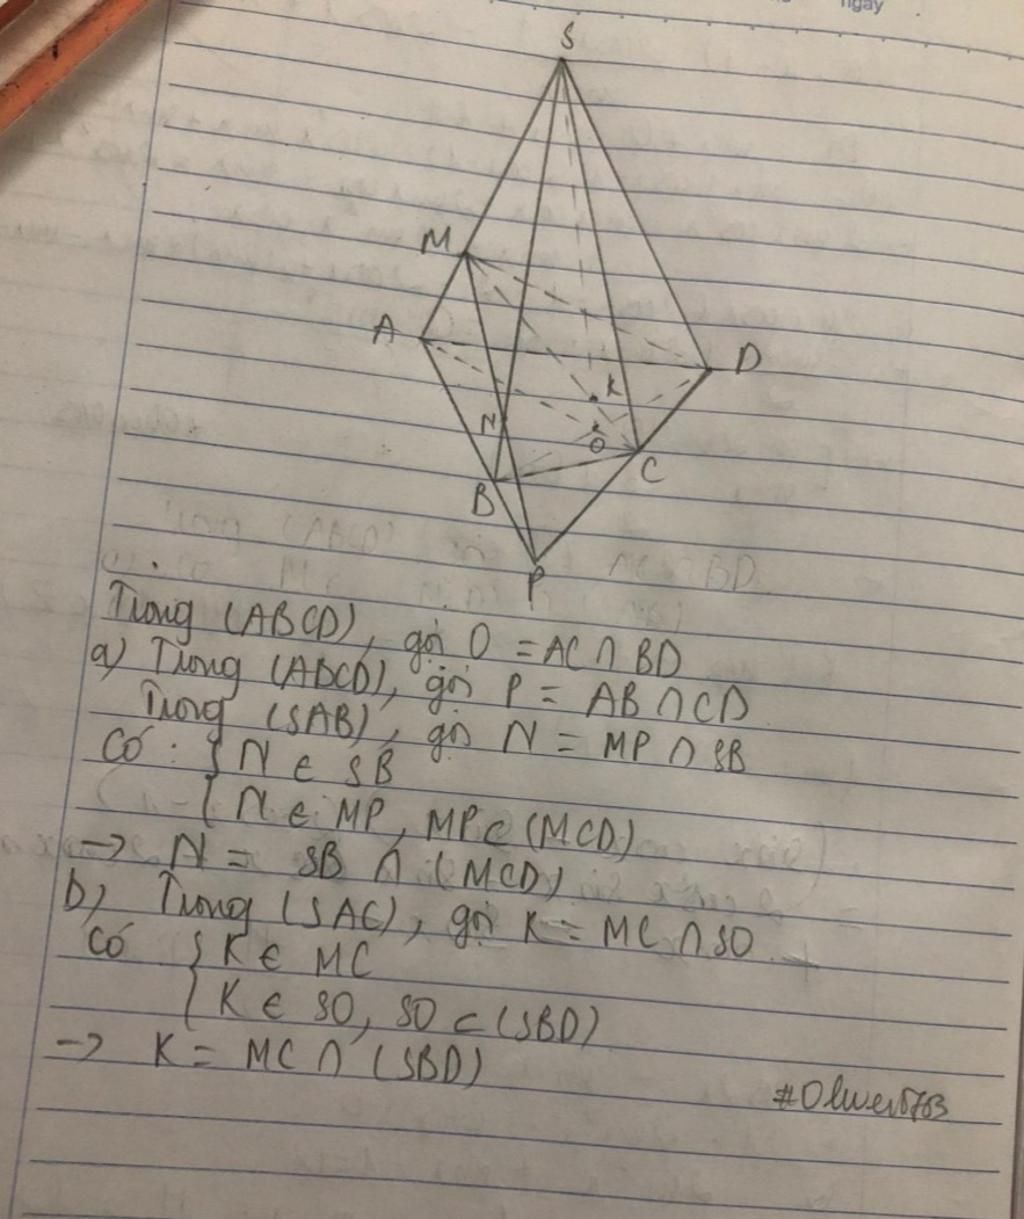 ngày
S
M
A
D
K
N
O
B
C
P
Trong (ABCD), gọi O = AC ∩ BD
a) Trong (ABCD), gọi P = AB ∩ CD
Trong (SAB), gọi N = MP ∩ SB
Có : { N ∈ SB
{ N ∈ MP, MP ⊂ (MCD)
→ N = SB ∩ (MCD)
b) Trong (SAC), gọi K = MC ∩ SO
Có { K ∈ MC
{ K ∈ SO, SO ⊂ (SBD)
→ K = MC ∩ (SBD)